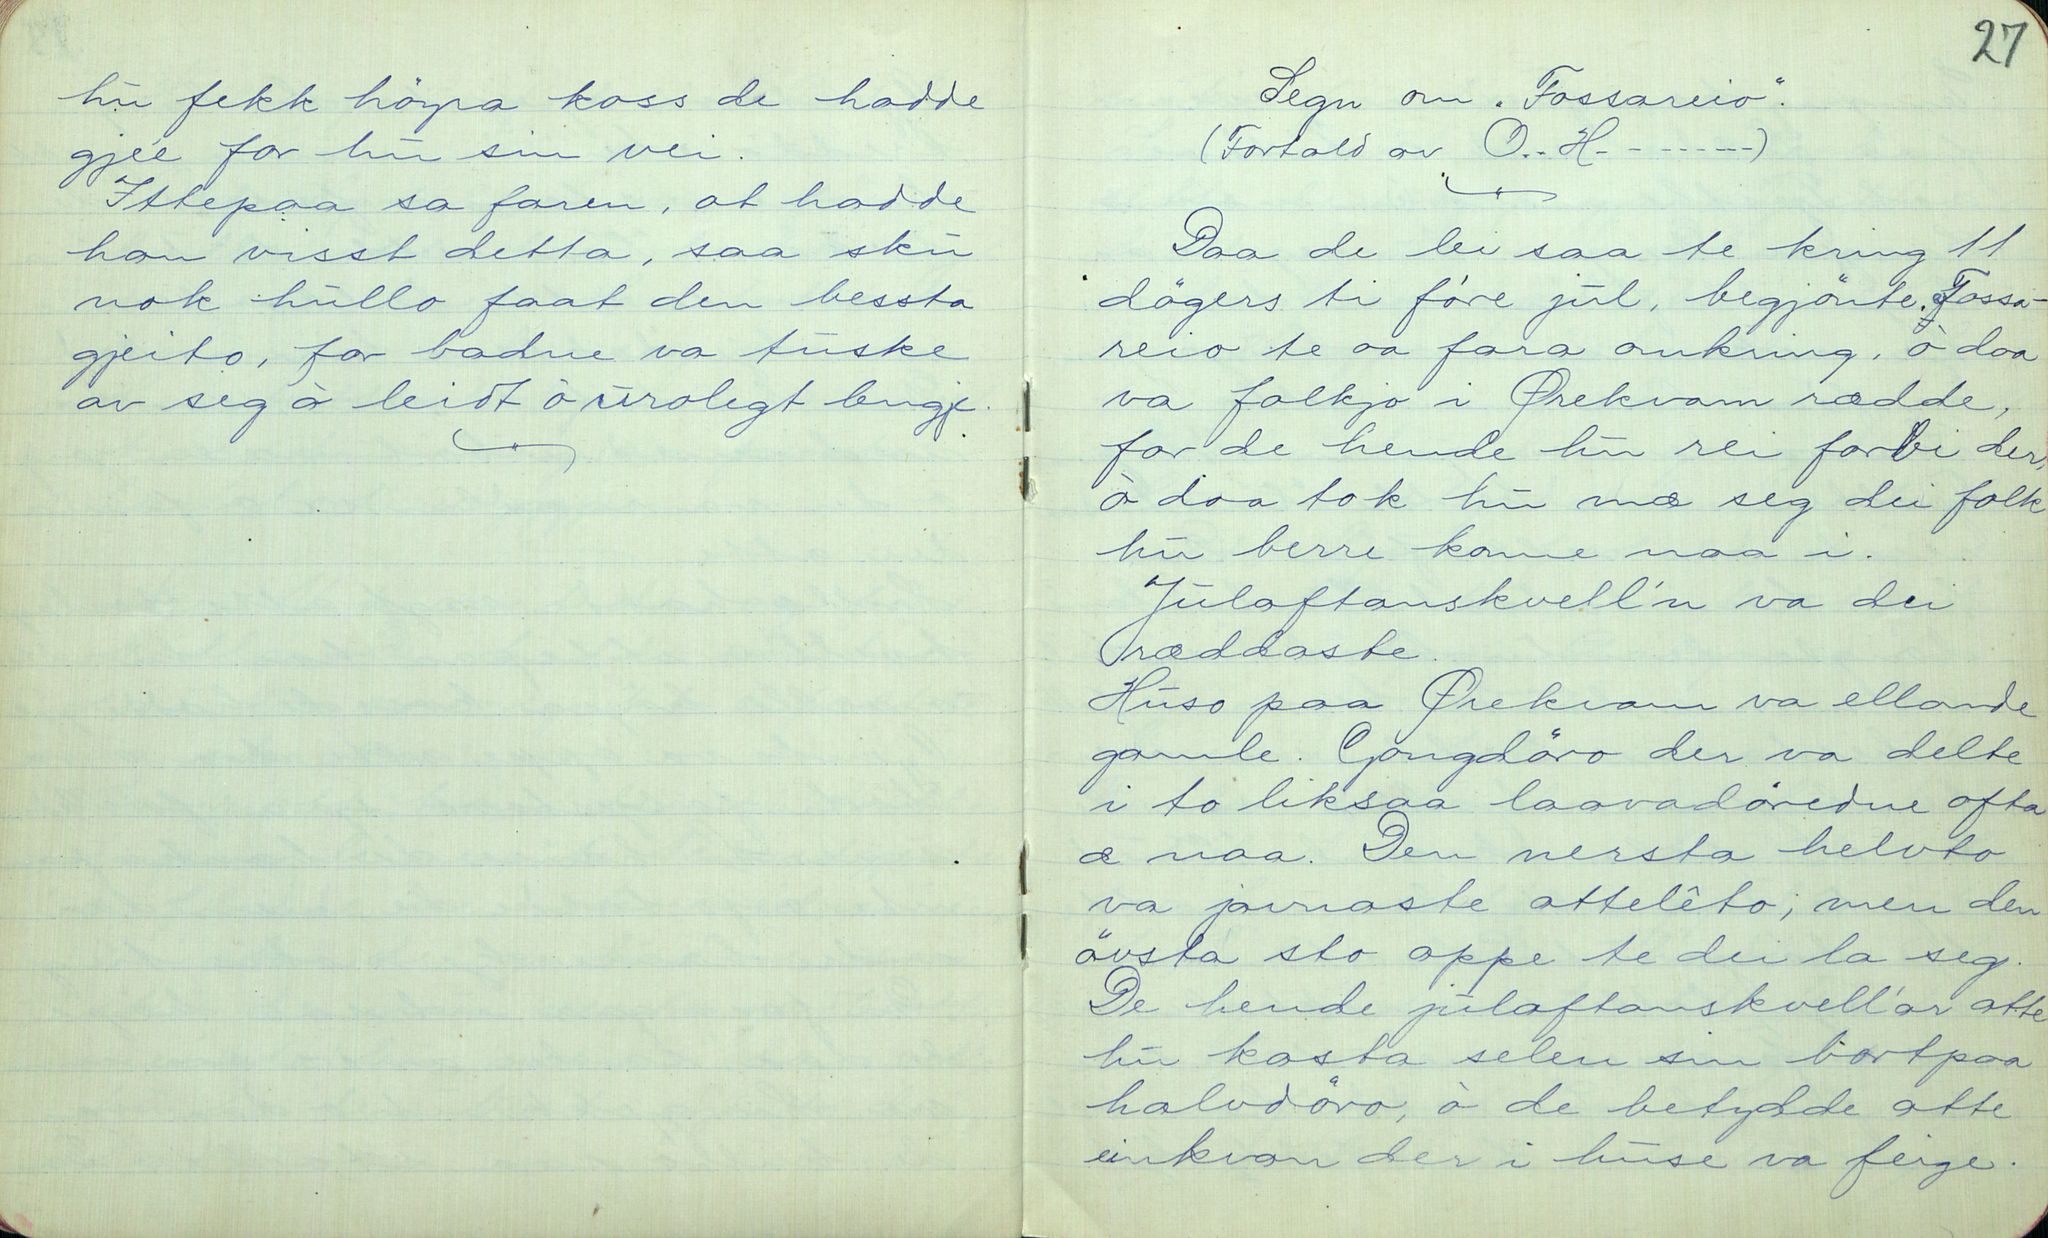 hu fekk höyra koss de hadde
gjèe for hu sin vei.
Ittepaa sa faren, at hadde
han visst detta, saa sku
nok hullo faat den bessta
gjeito, for badne va tuske
av seg ò leidt ò uroleg­t lengje.
27
Segn om "Fossareio".
(Fortald av O.-H. - - - - - - -)
Daa de lei saa te kring 11
dögers ti före jul, begjönte "Fossa-
reio te aa fara onkring, ò daa
va folkjo i Ørekvam rædde,
for de hende hu rei forbi der,
ò daa tok hu mæ seg dei folk
hu berre konne naa i.
Julaftanskvell'n va dei
ræddaste.
Huso paa Ørekvam va ellande
gamle. Gongdöro der va delte
i to liksaa laavadöredne ofta
æ naa. Den nersta helvto
va javnaste attelêto; men den
övsta sto oppe te dei la seg.
De hende julaftanskvell'ar atte
hu kasta selen sin bortpaa
halvdöro, ò de betydde atte
einkvan der i huse va feige.